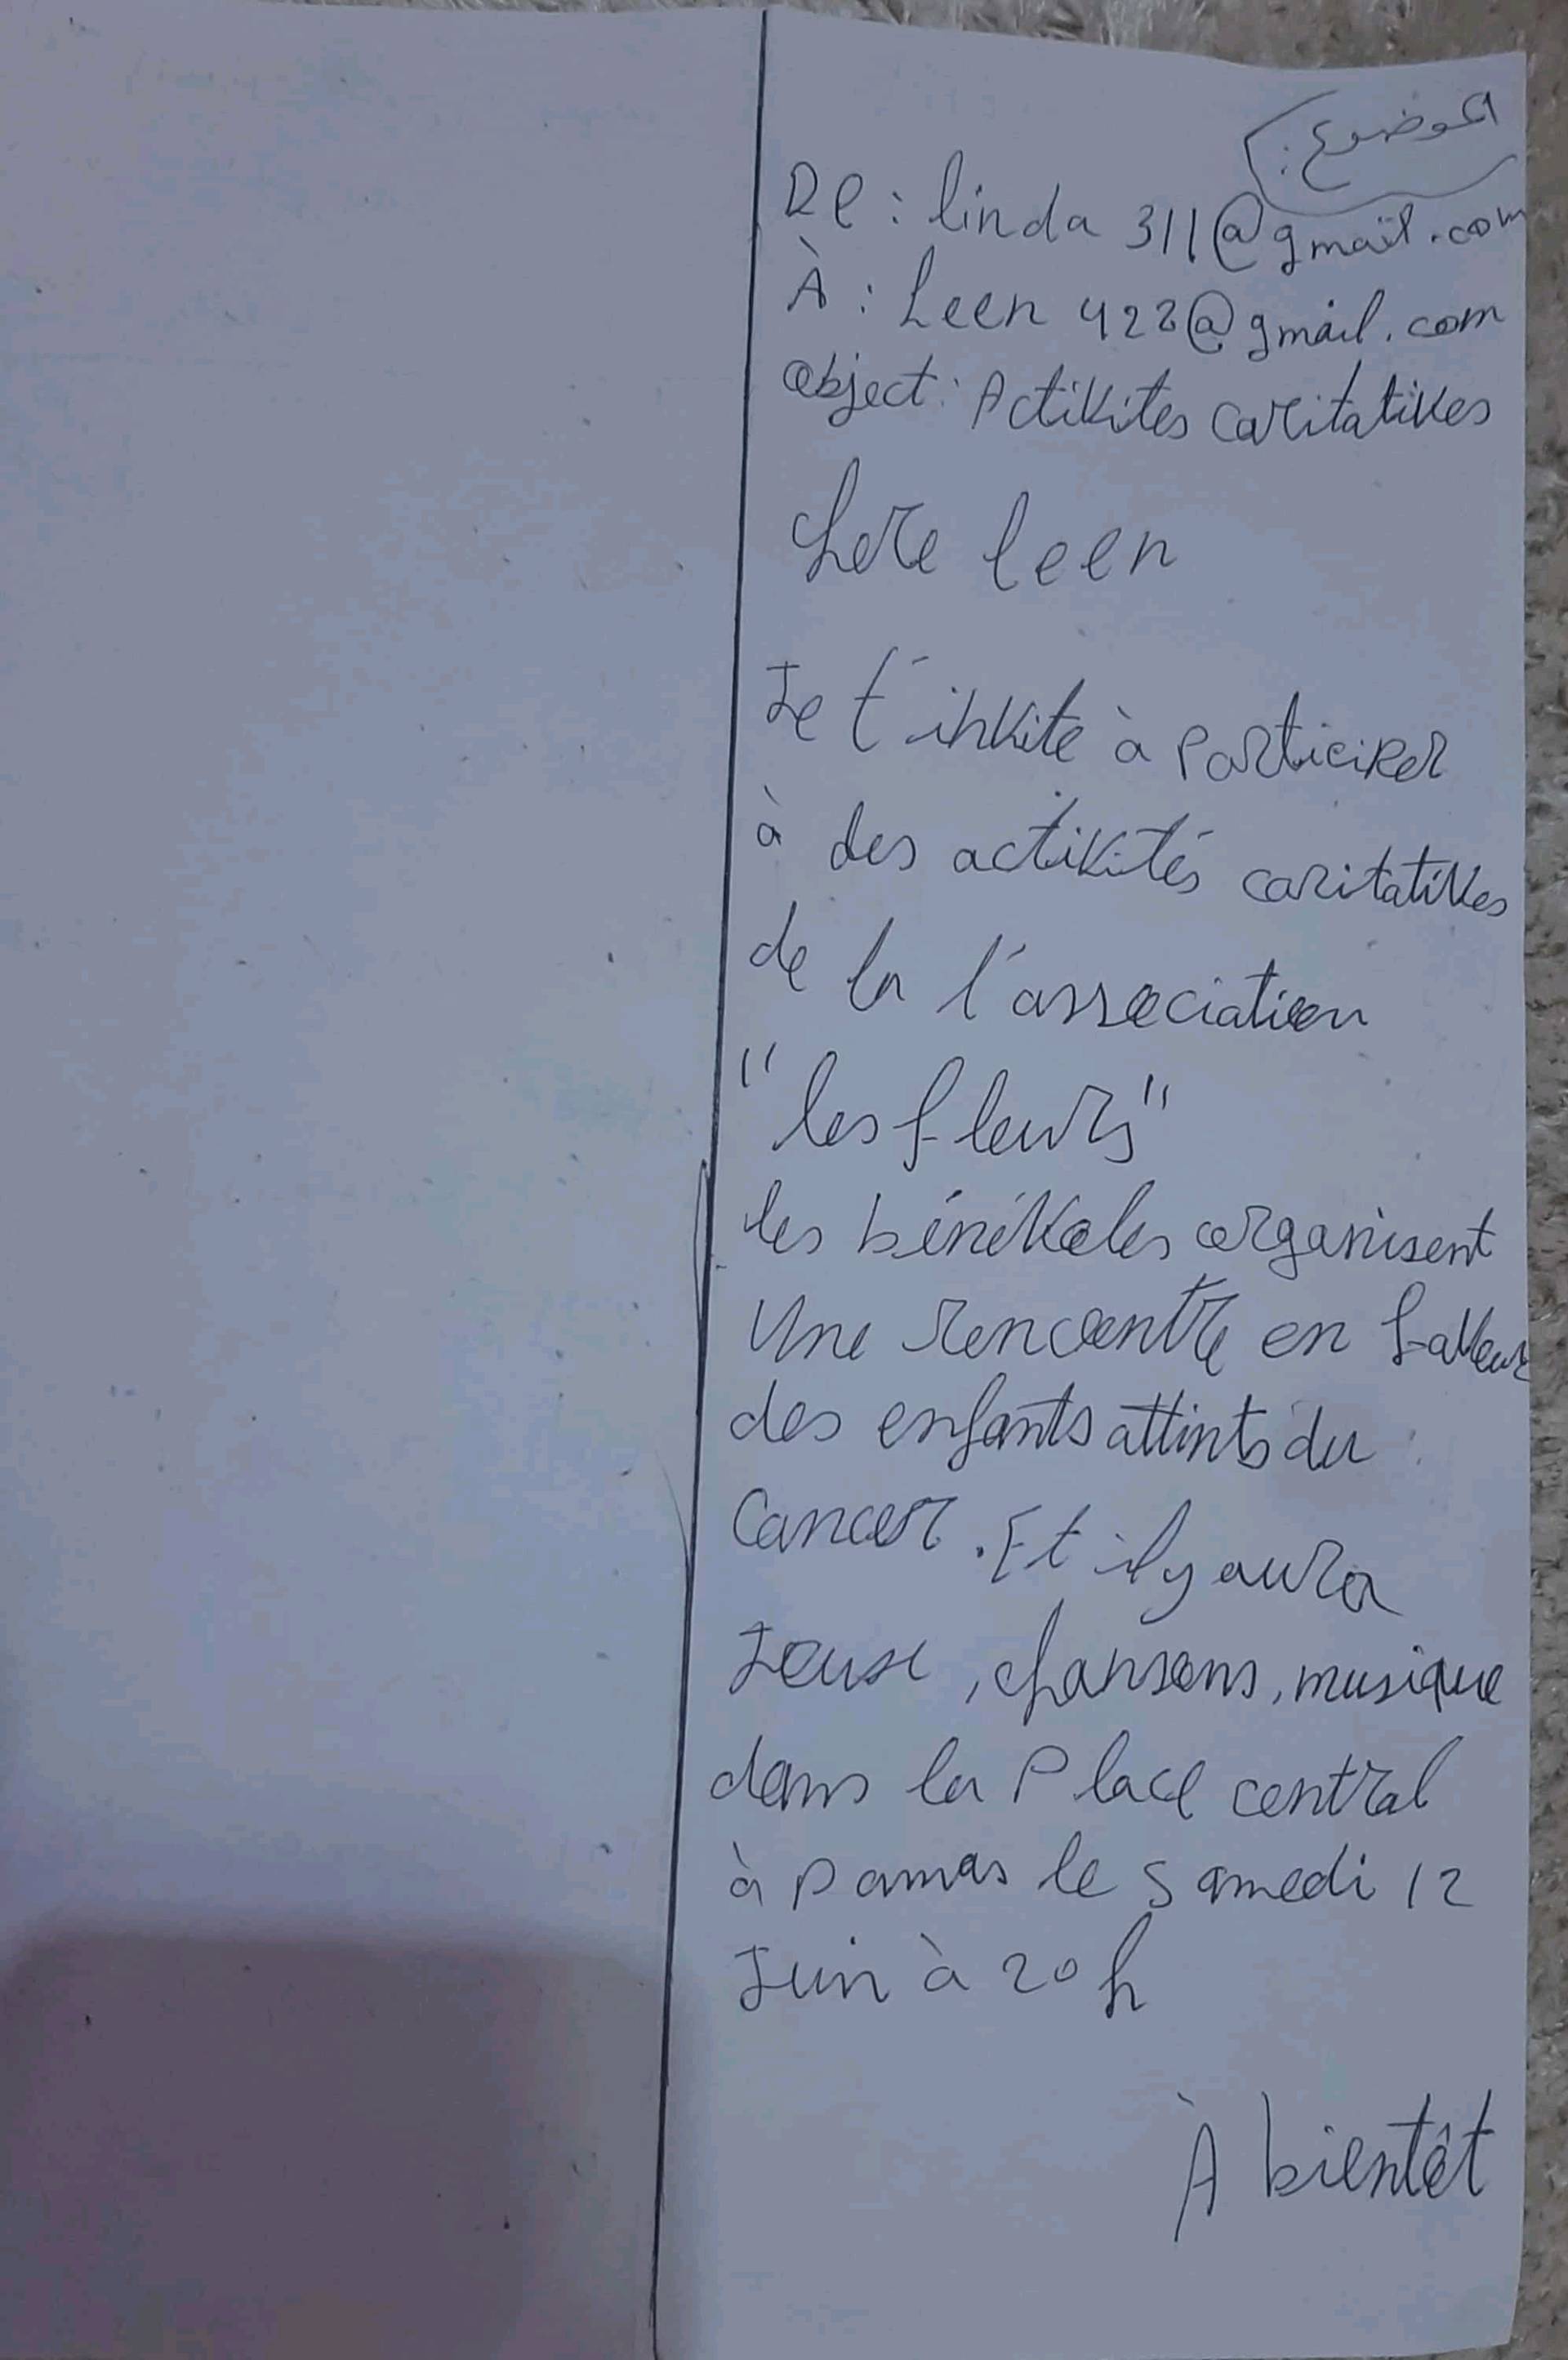 الموضوع:
De : linda 311@gmail.com
À : Leen 422@gmail.com
object : Activités caritatives
chere leen
Je t'invite à participer
à des activités caritatives
de la l'association
"les fleurs"
les bénévoles organisent
Une rencontre en faveur
des enfants attints du
Cancer . Et il y aura
Jeuse , chansons , musique
dans la Place central
à Damas le samedi 12
Juin à 20 h
À bientôt